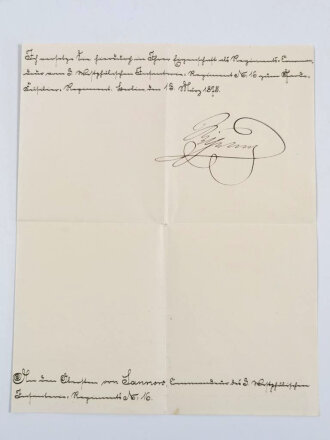 Ich versetze Sie hierdurch in Ihrer Eigenschaft als Regiments-Comman-
deur vom 3. Westphälischen Infanterie-Regiment No 16. zum Garde-
Füsilier-Regiment. Berlin den 13. März 1878.
Wilhelm
An den Obersten von Sannow, Commandeur des 3. Westphälischen
Infanterie-Regiments No 16.